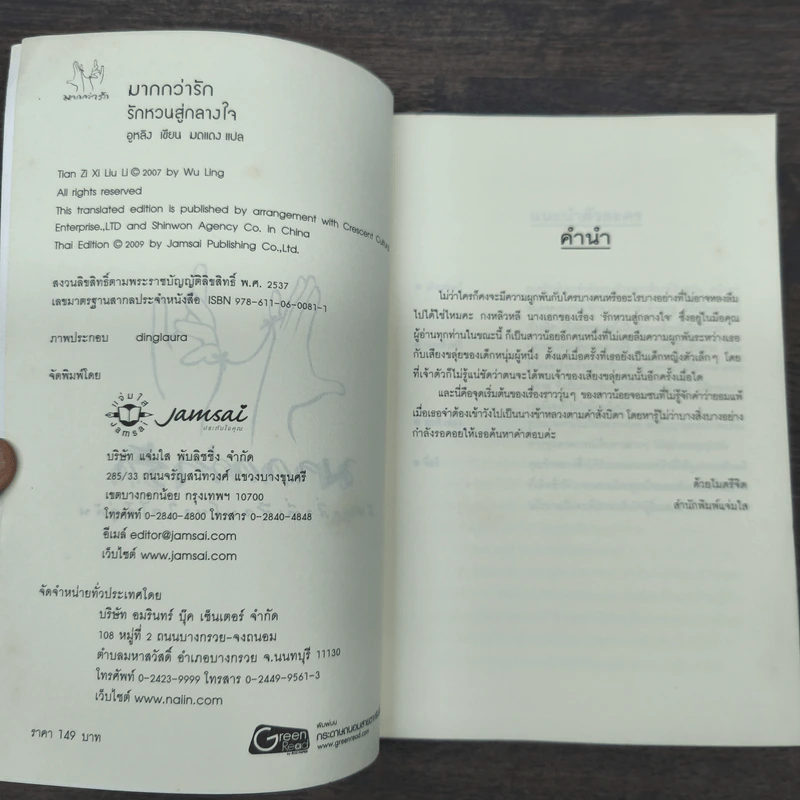 มากกว่ารัก
มากกว่ารัก
รักหวนสู่กลางใจ
อูหลิง เขียน มดแดง แปล
Tian Zi Xi Liu Li © 2007 by Wu Ling
All rights reserved
This translated edition is published by arrangement with Crescent
Enterprise.,LTD and Shinwon Agency Co. in China
Thai Edition © 2009 by Jamsai Publishing Co.,Ltd.
สงวนลิขสิทธิ์ตามพระราชบัญญัติลิขสิทธิ์ พ.ศ. 2537
เลขมาตรฐานสากลประจำหนังสือ ISBN 978-611-06-0081-1
ภาพประกอบ dinglaura
จัดพิมพ์โดย
แจ่มใส
Jamsai
Jamsai
ประทับใจคุณ
บริษัท แจ่มใส พับลิชชิ่ง จำกัด
285/33 ถนนจรัญสนิทวงศ์ แขวงบางขุนศรี
เขตบางกอกน้อย กรุงเทพฯ 10700
โทรศัพท์ 0-2840-4800 โทรสาร 0-2840-4848
อีเมล์ editor@jamsai.com
เว็บไซต์ www.jamsai.com
จัดจำหน่ายทั่วประเทศโดย
บริษัท อมรินทร์ บุ๊ค เซ็นเตอร์ จำกัด
108 หมู่ที่ 2 ถนนบางกรวย-จงถนอม
ตำบลมหาสวัสดิ์ อำเภอบางกรวย จ.นนทบุรี 11130
โทรศัพท์ 0-2423-9999 โทรสาร 0-2449-9561-3
เว็บไซต์ www.naiin.com
ราคา 149 บาท
Green
Read
พิมพ์บน
กระดาษถนอมสายตา
www.greenread.com
คำนำ
ไม่ว่าใครก็คงจะมีความผูกพันกับใครบางคนหรืออะไรบางอย่างที่ไม่อาจหลงลืม
ไปได้ใช่ไหมคะ กงหลิวหลี นางเอกของเรื่อง 'รักหวนสู่กลางใจ' ซึ่งอยู่ในมือคุณ
ผู้อ่านทุกท่านในขณะนี้ ก็เป็นสาวน้อยอีกคนหนึ่งที่ไม่เคยลืมความผูกพันระหว่างเธอ
กับเสียงขลุ่ยของเด็กหนุ่มผู้หนึ่ง ตั้งแต่เมื่อครั้งที่เธอยังเป็นเด็กหญิงตัวเล็กๆ โดย
ที่เจ้าตัวก็ไม่รู้แน่ชัดว่าตนจะได้พบเจ้าของเสียงขลุ่ยคนนั้นอีกครั้งเมื่อใด
และนี่คือจุดเริ่มต้นของเรื่องราววุ่นๆ ของสาวน้อยจอมซนที่ไม่รู้จักคำว่ายอมแพ้
เมื่อเธอจำต้องเข้าวังไปเป็นนางข้าหลวงตามคำสั่งบิดา โดยหารู้ไม่ว่าบางสิ่งบางอย่าง
กำลังรอคอยให้เธอค้นหาคำตอบค่ะ
ด้วยไมตรีจิต
สำนักพิมพ์แจ่มใส